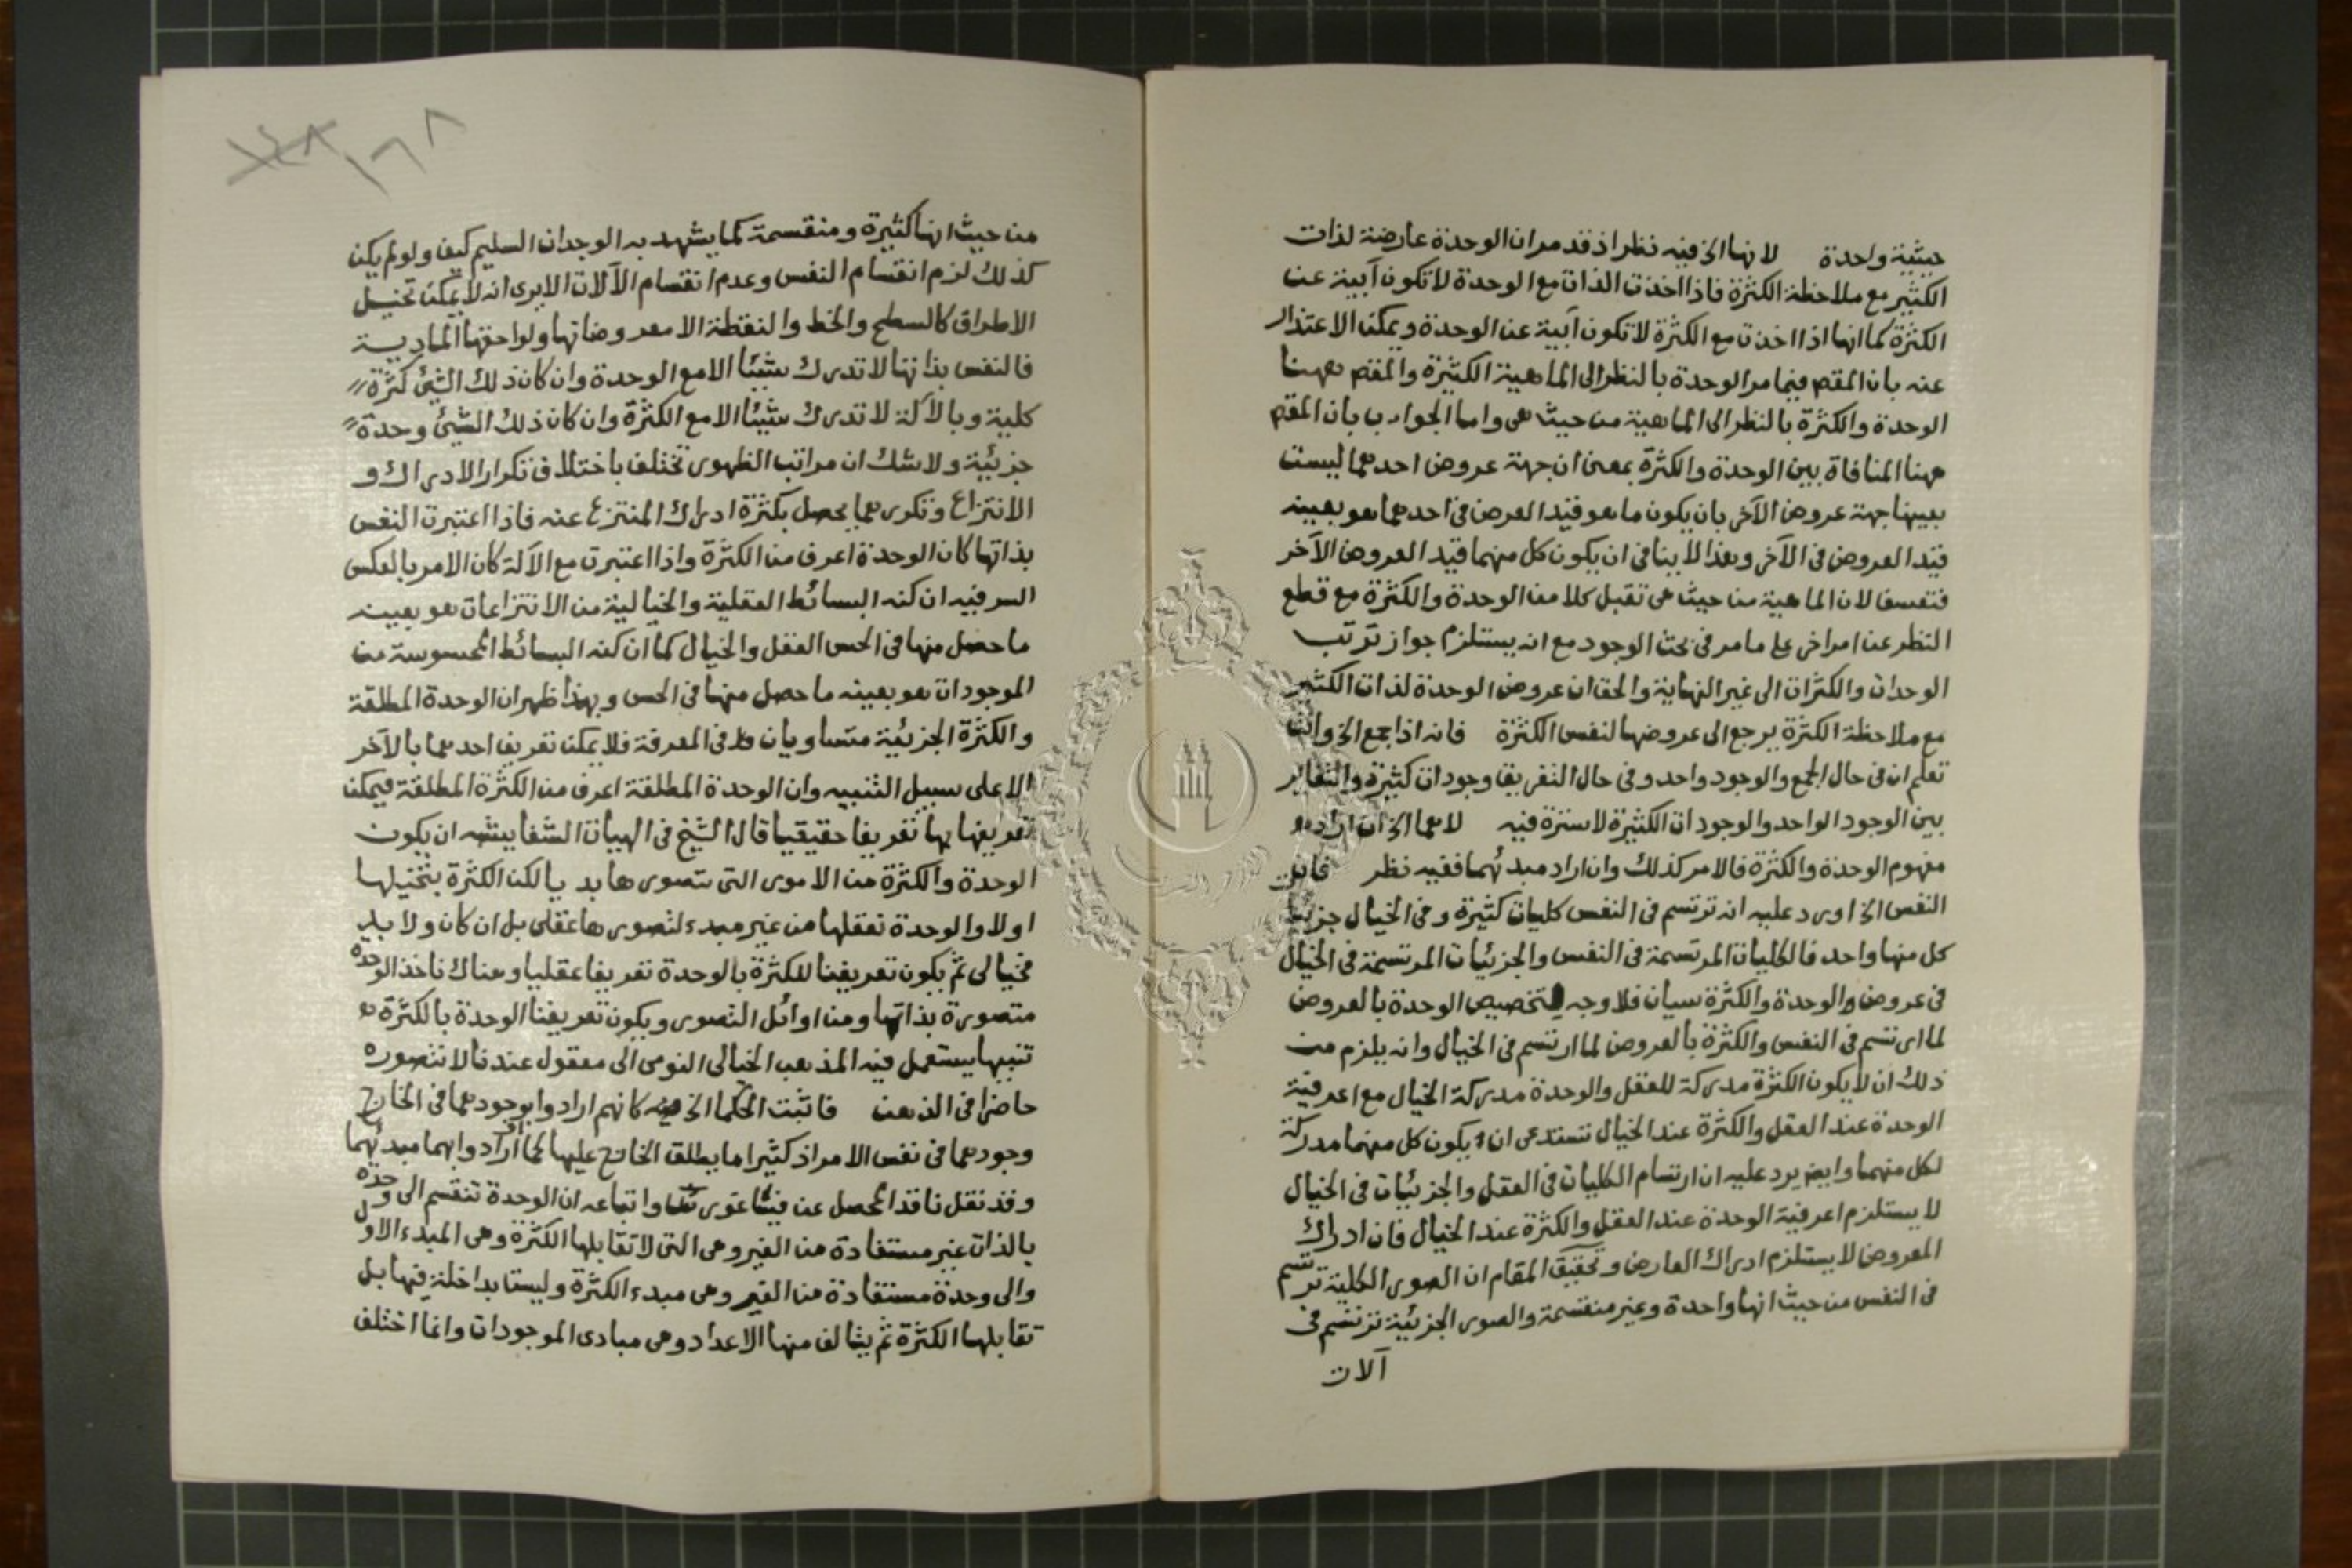 حيثية واحدة لانها الخ فيه نظر اذ قد مر ان الوحدة عارضة لذات
الكثير مع ملاحظة الكثرة فاذا اخذت الذات مع الوحدة لا تكون آبية عن
الكثرة كما انها اذا اخذت مع الكثرة لا تكون آبية عن الوحدة ويمكن الاعتذار
عنه بان المقص فيما مر الوحدة بالنظر الى الماهية الكثيرة والمقص ههنا
الوحدة والكثرة بالنظر الى الماهية من حيث هى واما الجواب بان المقص
ههنا المنافاة بين الوحدة والكثرة بمعنى ان جهة عروض احدهما ليست
بعينها جهة عروض الآخر بان يكون ما هو قيد العروض فى احدهما هو بعينه
قيد العروض فى الآخر وهذا لا ينافى ان يكون كل منهما قيد العروض الآخر
فتعسف لان الماهية من حيث هى تقبل كلا من الوحدة والكثرة مع قطع
النظر عن امر اخر على ما مر فى بحث الوجود مع انه يستلزم جواز ترتب
الوحدات والكثرات الى غير النهاية والحق ان عروض الوحدة لذات الكثير
مع ملاحظة الكثرة يرجع الى عروضها لنفس الكثرة فانه اذا جمع الخ وانت
تعلم ان فى حال الجمع والوجود واحد وفى حال التفريق وجودات كثيرة والتغاير
بين الوجود الواحد والوجودات الكثيرة لا سترة فيه لاهما الخ ان اراد به
مفهوم الوحدة والكثرة فالامر كذلك وان اراد مبدئهما ففيه نظر فان
النفس الخ اورد عليه انه ترتسم فى النفس كليات كثيرة وفى الخيال جزئيات
كل منها واحد فالكليات المرتسمة فى النفس والجزئيات المرتسمة فى الخيال
فى عروض الوحدة والكثرة سيان فلا وجه لتخصيص الوحدة بالعروض
لما ارتسم فى النفس والكثرة بالعروض لما ارتسم فى الخيال وانه يلزم من
ذلك ان لا يكون الكثرة مدركة للعقل والوحدة مدركة الخيال مع اعرفية
الوحدة عند العقل والكثرة عند الخيال تستدعى ان يكون كل منهما مدركة
لكل منهما وايض يرد عليه ان ارتسام الكليات فى العقل والجزئيات فى الخيال
لا يستلزم اعرفية الوحدة عند العقل والكثرة عند الخيال فان ادراك
المعروض لا يستلزم ادراك العارض وتحقيق المقام ان الصور الكلية ترتسم
فى النفس من حيث انها واحدة وغير منقسمة والصور الجزئية ترتسم فى
آلات
١٦٨
١٤٨
من حيث انها كثيرة ومنقسمة كما يشهد به الوجدان السليم كيف ولو لم يكن
كذلك لزم انقسام النفس وعدم انقسام الآلات الا يرى انه لا يمكن تخيل
الاطراف كالسطح والخط والنقطة الا معروضاتها ولواحقها المادية
فالنفس بذاتها لا تدرك شيئا الا مع الوحدة وان كان ذلك الشئ كثرة
كلية وبالآلة لا تدرك شيئا الا مع الكثرة وان كان ذلك الشئ وحدة
جزئية ولا شك ان مراتب الظهور تختلف باختلاف تكرار الادراك و
الانتزاع وتكررهما يحصل بكثرة ادراك المنتزع عنه فاذا اعتبرت النفس
بذاتها كان الوحدة اعرف من الكثرة واذا اعتبرت مع الآلة كان الامر بالعكس
السر فيه ان كنه البسائط العقلية والخيالية من الانتزاعات هو بعينه
ما حصل منها فى الحس العقل والخيال كما ان كنه البسائط المحسوسة من
الموجودات هو بعينه ما حصل منها فى الحس وبهذا ظهر ان الوحدة المطلقة
والكثرة الجزئية متساويان فى المعرفة فلا يمكن تعريف احدهما بالآخر
الا على سبيل التنبيه وان الوحدة المطلقة اعرف من الكثرة المطلقة فيمكن
تعريفها بها تعريفا حقيقيا قال الشيخ فى الهيات الشفا يشبه ان يكون
الوحدة والكثرة من الامور التى نتصورها بديا لكن الكثرة نتخيلها
اولا والوحدة نعقلها من غير مبدء لتصورها عقلى بل ان كان ولا بد
فخيالى ثم يكون تعريفنا للكثرة بالوحدة تعريفا عقليا وهناك ناخذ الوحدة
متصورة بذاتها ومن اوائل التصور ويكون تعريفنا الوحدة بالكثرة
تنبيها يستعمل فيه المذهب الخيالى النومى الى معقول عندنا لا نتصوره
حاضرا فى الذهن فاثبت الحكما الخ كانهم ارادوا بوجودهما فى الخارج
وجودهما فى نفس الامر اذ كثيرا ما يطلق الخارج عليها كما ارادوا بهما مبدئهما
وقد نقل ناقد المحصل عن فيثاغورث واتباعه ان الوحدة تنقسم الى وحدة
بالذات غير مستفادة من الغير وهى التى لا تقابلها الكثرة وهى المبدء الاول
والى وحدة مستفادة من الغير وهى مبدء الكثرة وليست بداخلة فيها بل
تقابلها الكثرة ثم يتالف منها الاعداد وهى مبادى الموجودات وانما اختلف